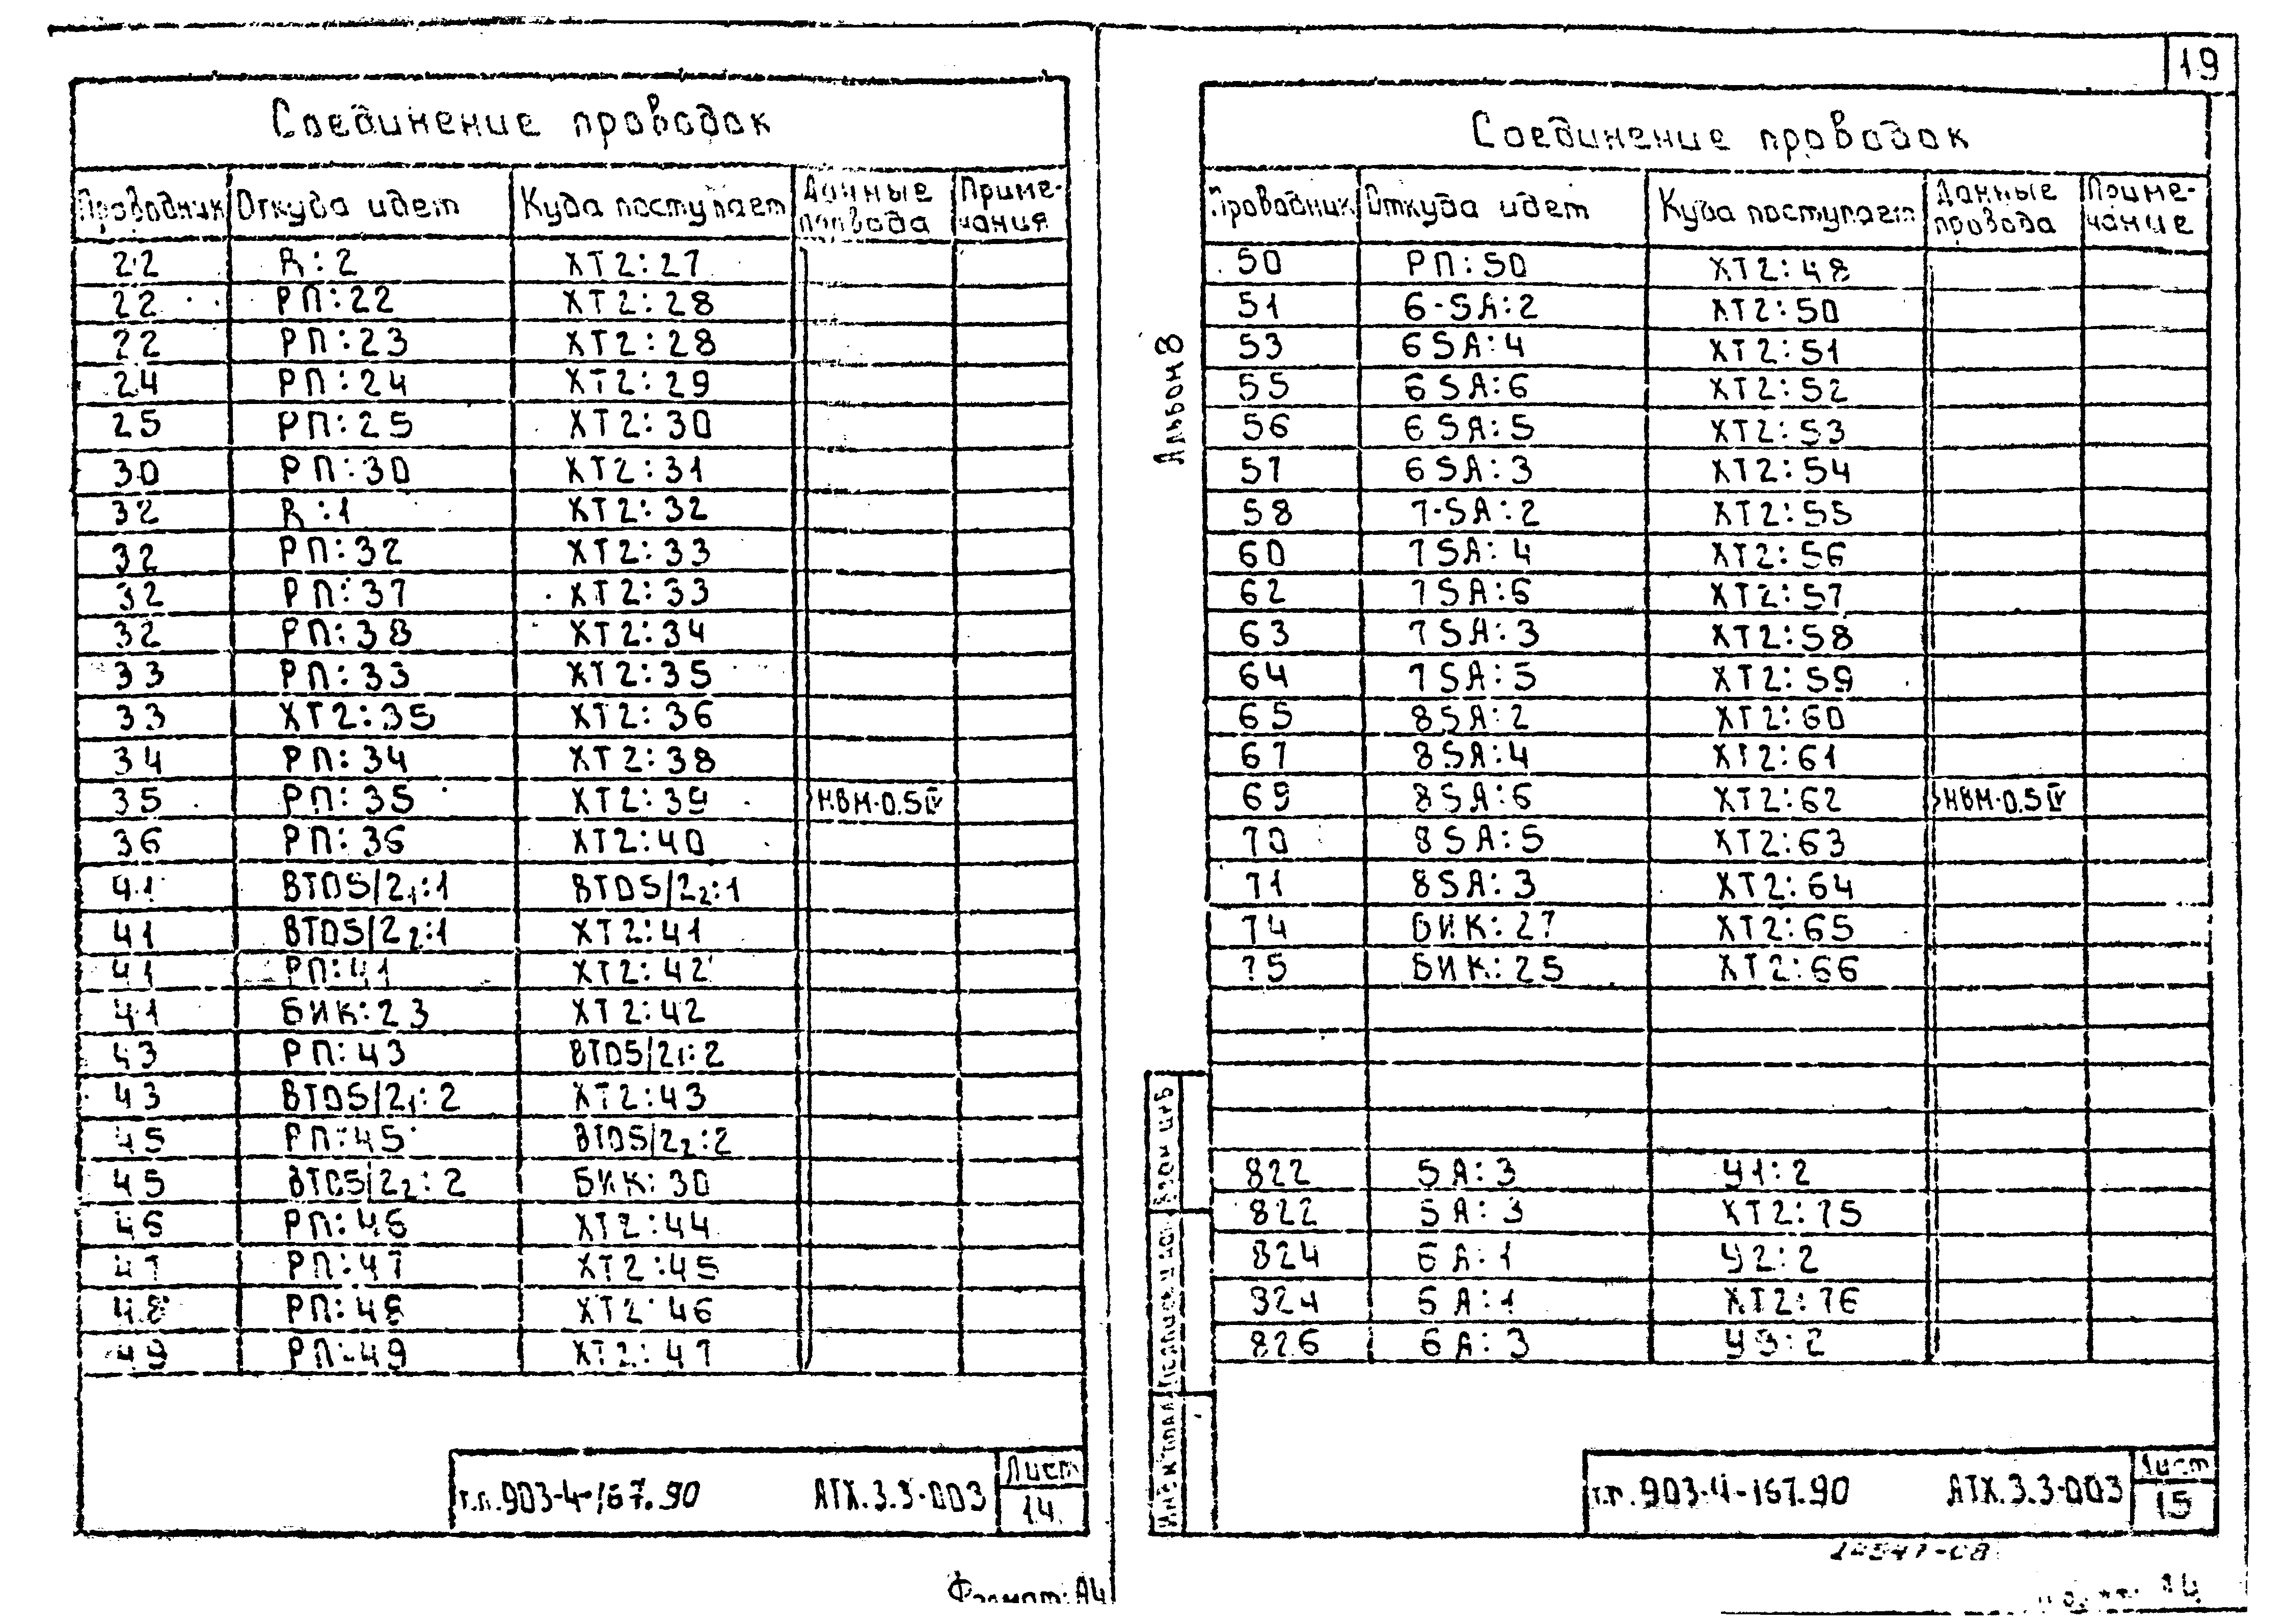 Соединение проводок
Проводник Откуда идет Куда поступает Данные провода Приме-чания
22 R:2 XT2:27
22 РП:22 XT2:28
22 РП:23 XT2:28
24 РП:24 XT2:29
25 РП:25 XT2:30
30 РП:30 XT2:31
32 R:1 XT2:32
32 РП:32 XT2:33
32 РП:37 XT2:33
32 РП:38 XT2:34
33 РП:33 XT2:35
33 XT2:35 XT2:36
34 РП:34 XT2:38
35 РП:35 XT2:39 НВМ-0.5 IV
36 РП:36 XT2:40
41 BTDS/2₁:1 BTDS/2₂:1
41 BTDS/2₂:1 XT2:41
41 РП:41 XT2:42
41 БИК:23 XT2:42
43 РП:43 BTDS/2₁:2
43 BTDS/2₁:2 XT2:43
45 РП:45 BTDS/2₂:2
45 BTDS/2₂:2 БИК:30
46 РП:46 XT2:44
47 РП:47 XT2:45
48 РП:48 XT2:46
49 РП-49 XT2:47
т.п.903-4-167.90 АТХ.3.3-003 Лист
14
Формат: А4
19
Альбом 8
Соединение проводок
Проводник Откуда идет Куда поступает Данные провода Приме-чание
50 РП:50 XT2:48
51 6-SA:2 XT2:50
53 6SA:4 XT2:51
55 6SA:6 XT2:52
56 6SA:5 XT2:53
57 6SA:3 XT2:54
58 7-SA:2 XT2:55
60 7SA:4 XT2:56
62 7SA:6 XT2:57
63 7SA:3 XT2:58
64 7SA:5 XT2:59
65 8SA:2 XT2:60
67 8SA:4 XT2:61
69 8SA:6 XT2:62 НВМ-0.5 IV
70 8SA:5 XT2:63
71 8SA:3 XT2:64
74 БИК:27 XT2:65
75 БИК:25 XT2:66
822 5A:3 У1:2
822 5A:3 XT2:75
824 6A:1 У2:2
824 5A:1 XT2:76
826 6A:3 У3:2
т.п.903-4-167.90 АТХ.3.3-003 Лист
15